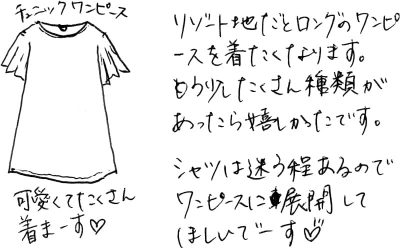 チュニックワンピース
可愛くてたくさん
着まーす♡
リゾート地だとロングのワンピ
ースを着たくなります。
もう少したくさん種類が
あったら嬉しかったです。
シャツは迷う程あるので
ワンピースに展開して
ほしいでーす♡